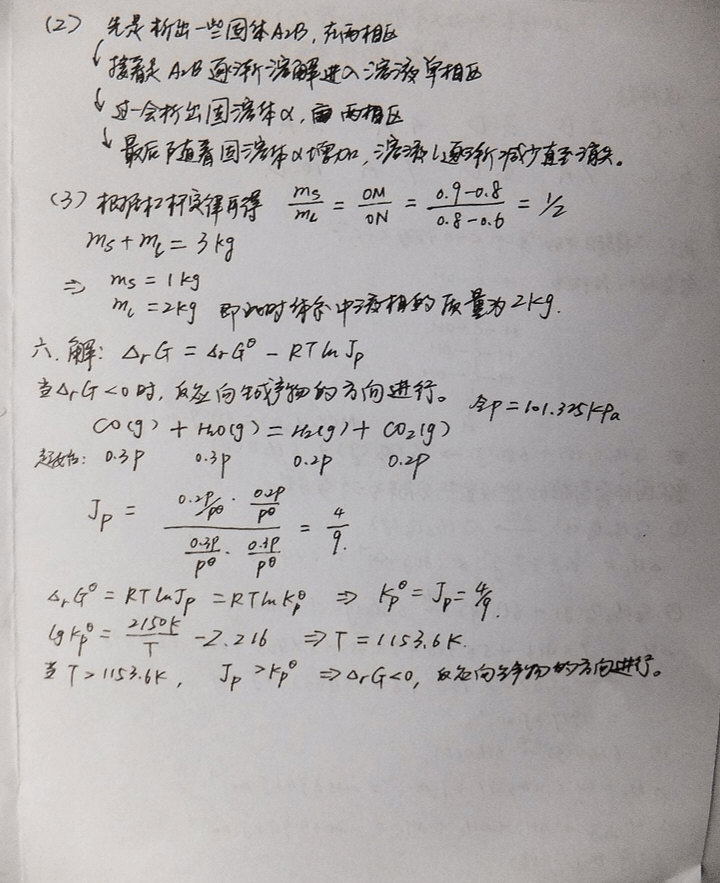 (2) 先是析出一些固体A2B, 在两相区
↓ 接着是A2B逐渐溶解进入溶液单相区
↓ 过一会析出固溶体α, 两相区
↓ 最后随着固溶体α增加, 溶液L逐渐减少直至消失。
(3) 根据杠杆定律可得 ms/mL = OM/ON = (0.9-0.8)/(0.8-0.6) = 1/2
ms + mL = 3kg
⇒ ms = 1kg
mL = 2kg 即此时体系中液相的质量为2kg.
六. 解: ΔrG = ΔrG^θ - RT ln Jp
当ΔrG<0时, 反应向生成产物的方向进行。 令P=101.325kPa
CO(g) + H2O(g) = H2(g) + CO2(g)
起始: 0.3P 0.3P 0.2P 0.2P
Jp = (0.2P/P^θ · 0.2P/P^θ)/(0.3P/P^θ · 0.3P/P^θ) = 4/9.
ΔrG^θ = RT ln Jp = RT ln Kp^θ ⇒ Kp^θ = Jp = 4/9.
lg Kp^θ = 2150K/T - 2.216 ⇒ T = 1153.6K.
当T>1153.6K, Jp > Kp^θ ⇒ ΔrG<0, 反应向产物的方向进行。